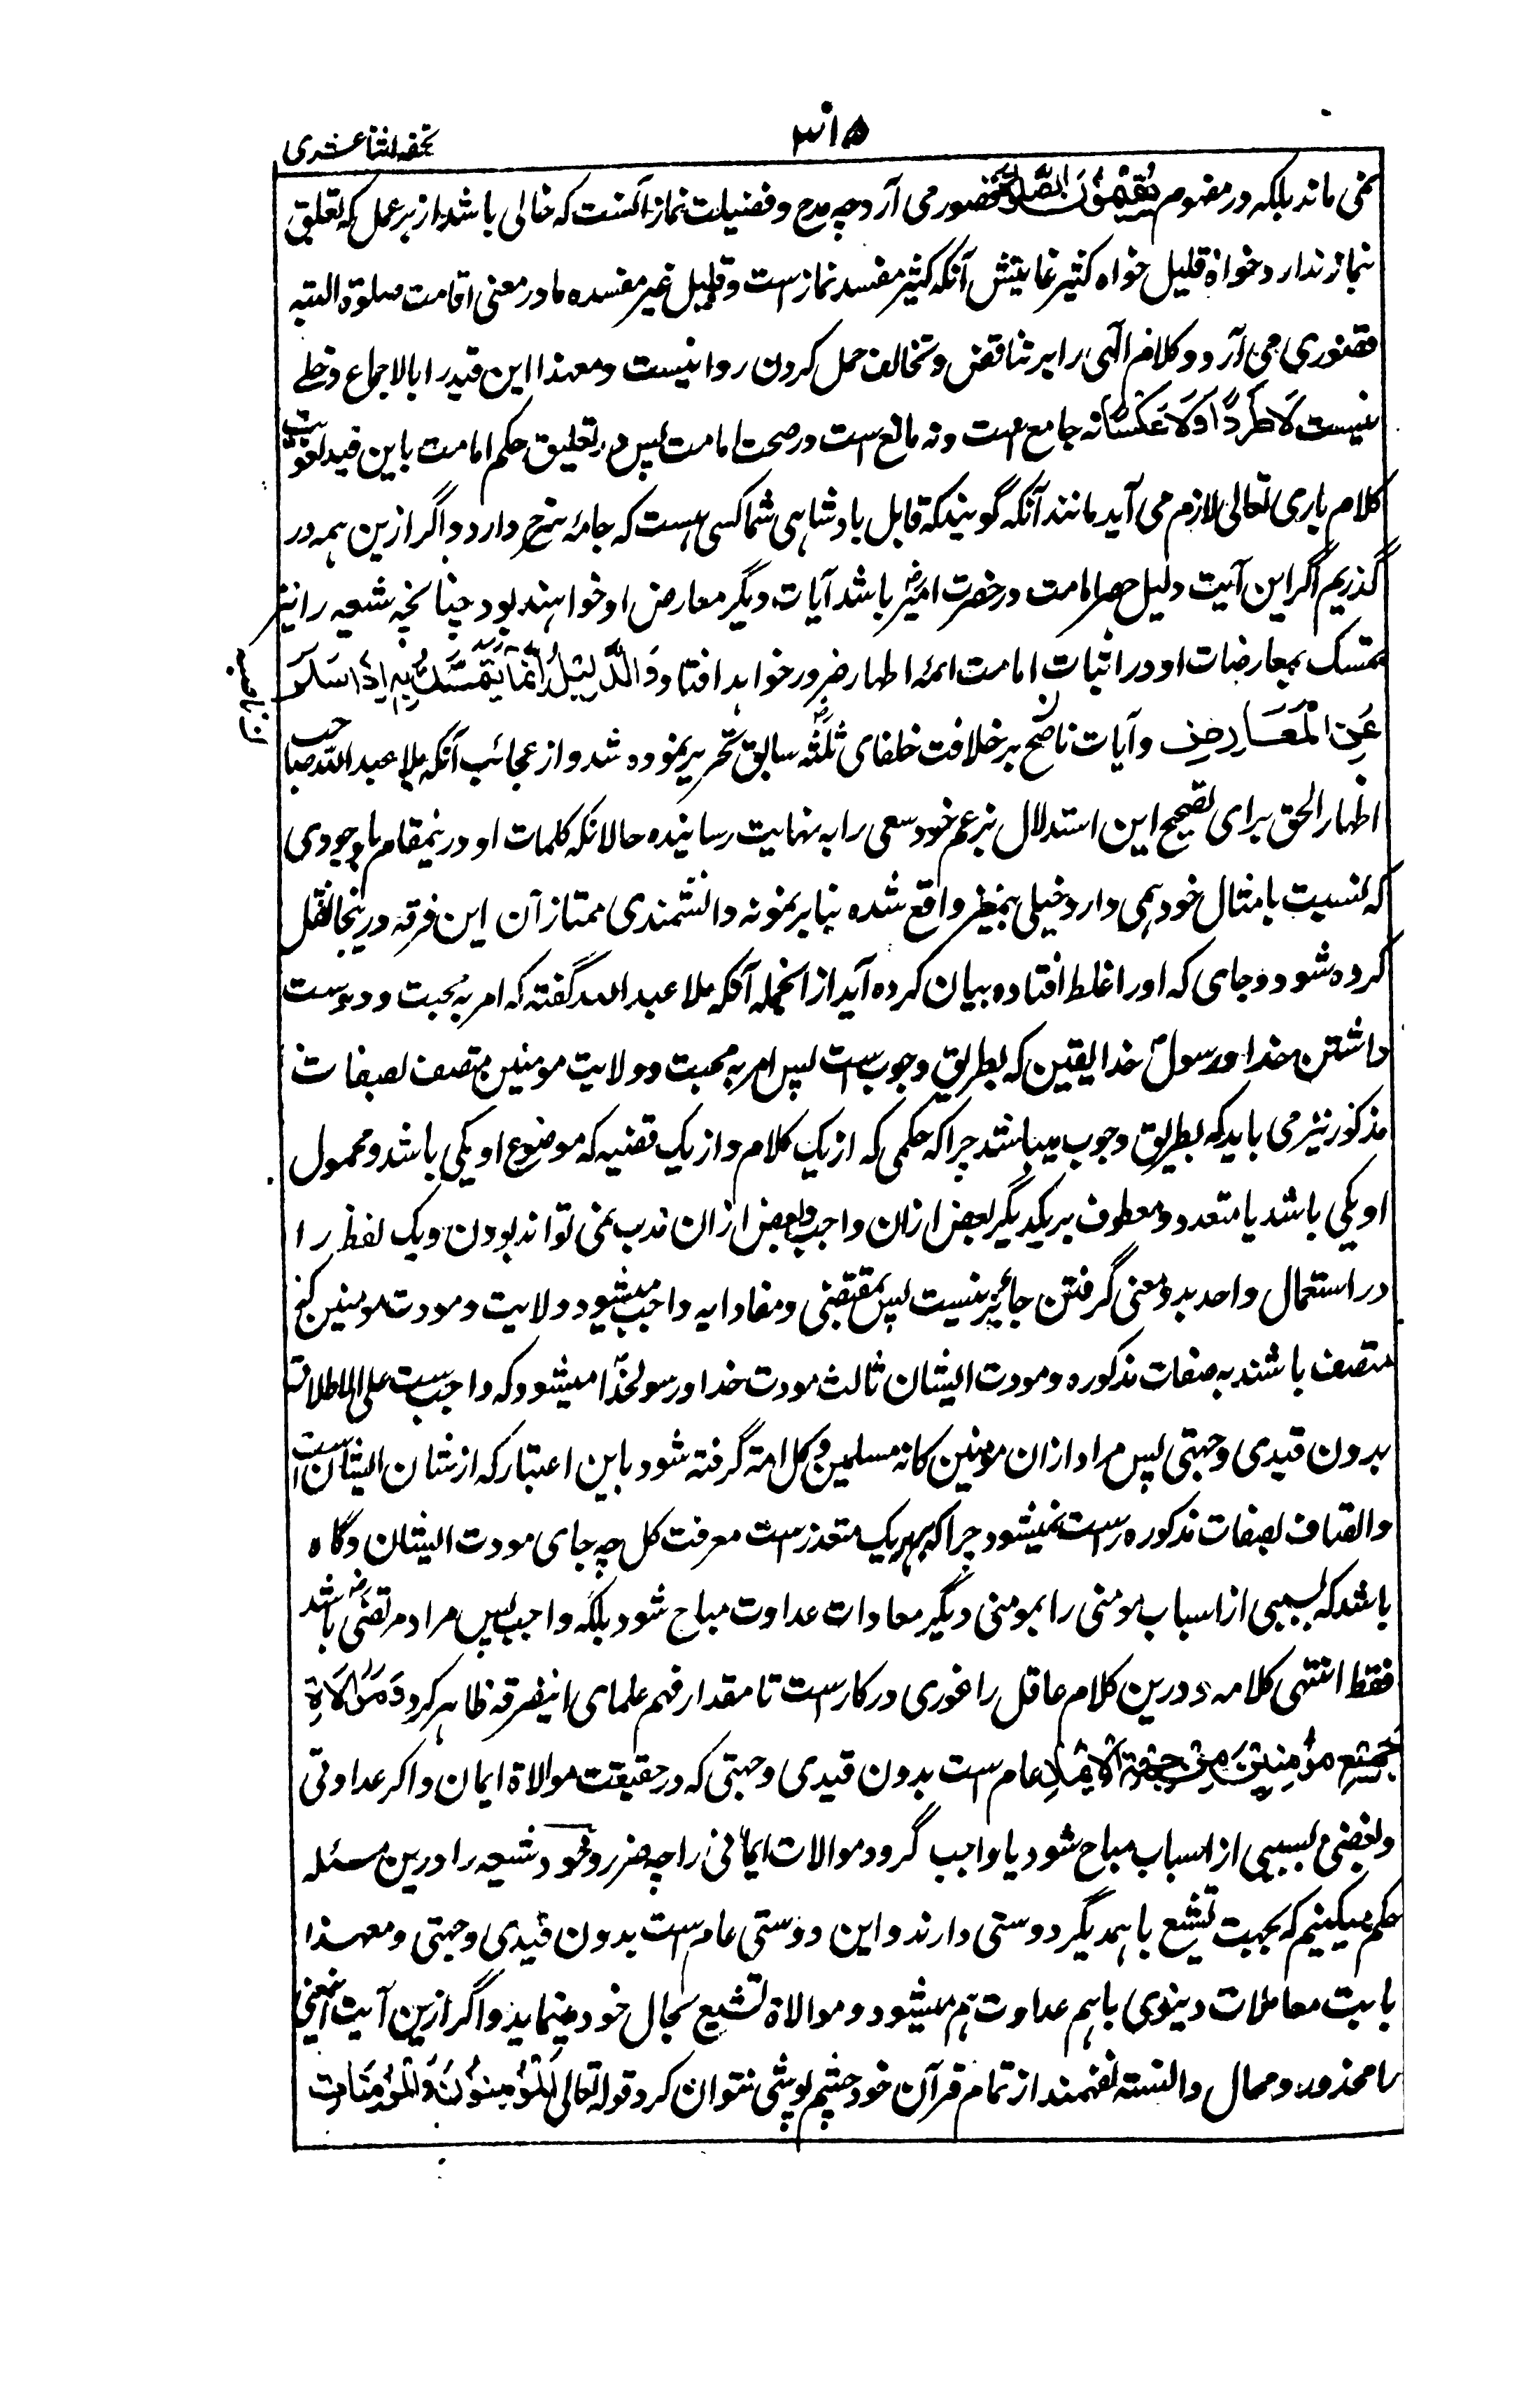 تحفه اثنا عشری
نمی ماند بلکه در مفهوم یُقِیْمُوْنَ الصَّلٰوةَ قصور می آرد چه مدح و فضیلت نماز آنست که خالی باشد از هر عمل که تعلق
بنماز ندارد خواه قلیل خواه کثیر غایتش آنکه کثیر مفسد نماز است و قلیل غیر مفسده ما در معنی اقامت صلوة البته
قصوری می آرد و کلام الهی را بر تناقض و تخالف حمل کردن روا نیست و معهذا این قید را بالاجماع دخلے
نیست لَا طَرْدًا وَلَا عَكْسًا نه جامع است و نه مانع است در صحت امامت پس در تعلیق حکم امامت باین قید لغویت
کلام باری تعالی لازم می آید مانند آنکه گویند که قابل بادشاهی شما کسی هست که جامهٔ سرخ دارد و اگر ازین همه در
گذریم اگر این آیت دلیل حصر امامت در حضرت امیرؓ باشد آیات دیگر معارض او خواهند بود چنانچه شیعه را نیز
تمسک بمعارضات او در اثبات امامت ائمه اطهار ضرور خواهد افتاد وَالدَّلِیْلُ اِنَّمَا یُتَمَسَّكُ بِهٖ اِذَا سَلَمَ
عَنِ الْمَعَارِضِ و آیات ناصح بر خلافت خلفای ثلثهؓ سابق تحریر نموده شد و از عجائب آنکه ملا عبد الله صاحب
اظهار الحق برای تصحیح این استدلال بزعم خود سعی را به نهایت رسانیده حالانکه کلمات او درینمقام باوجودی
که نسبت بامثال خود همی دارد خیلی بیمغز واقع شده بنابر نمونه دانشمندی ممتاز آن این فرقه درینجا نقل
کرده شود و جای که او را غلط افتاده بیان کرده آید از انجمله آنکه ملا عبد الله گفته که امر به محبت و دوست
داشتن خدا و رسولؐ خدا یقین که بطریق وجوب ست پس امر به محبت و ولایت مومنین متصف بصفات
مذکور نیز می باید که بطریق وجوب میباشد چرا که حکمی که از یک کلام و از یک قضیه که موضوع او یکی باشد و محمول
او یکی باشد یا متعدد و معطوف بر یکدیگر بعض ازان واجب و بعض ازان ندب نمی تواند بودن و یک لفظ را
در استعمال واحد بدو معنی گرفتن جائز نیست پس بمقتضی و مفاد ایه واجب میشود ولایت و مودت مومنین که
متصف باشند به صفات مذکوره و مودت ایشان ثالث مودت خدا و رسولخدا میشود که واجب ست علی الاطلاق
بدون قیدی و جهتی پس مراد ازان مومنین کافه مسلمین و کل امة گرفته شود باین اعتبار که از شان ایشان ست
و اتصاف بصفات مذکوره راست نمیشود چرا که بهر یک متعذر ست معرفت کل چه جای مودت ایشان و گاه
باشد که بسببی از اسباب مومنی را بمومنی دیگر معادات عداوت مباح شود بلکه واجب پس مراد مرتضیؓ باشد
فقط انتهی کلامه و درین کلام عاقل را غوری درکار ست تا مقدار فهم علمای اینفرقه ظاهر کرد وَمَوَالَاةِ
جَمِیْعِ مُؤْمِنِیْنَ مِنْ جِهَةِ الْاِیْمَانِ عام ست بدون قیدی و جهتی که در حقیقت موالاة ایمان و اگر عداوتی
و بغضی بسببی از اسباب مباح شود یا واجب گرود موالات ایمانی را چه ضرر و خود شیعه را درین مسئله
حکم میکنیم که بجهت تشیع باهمدیگر دوستی دارند و این دوستی عام ست بدون قیدی و جهتی و معهذا
بابت معاملات دینوی باهم عداوت هم میشود و موالاة تشیع بحال خود میماند و اگر ازین آیت اینمعنی
را محذور و محال دانسته نفهمند از تمام قرآن خود چشم پوشی نتوان کرد قوله تعالی اَلْمُؤْمِنُوْنَ وَالْمُؤْمِنَاتِ